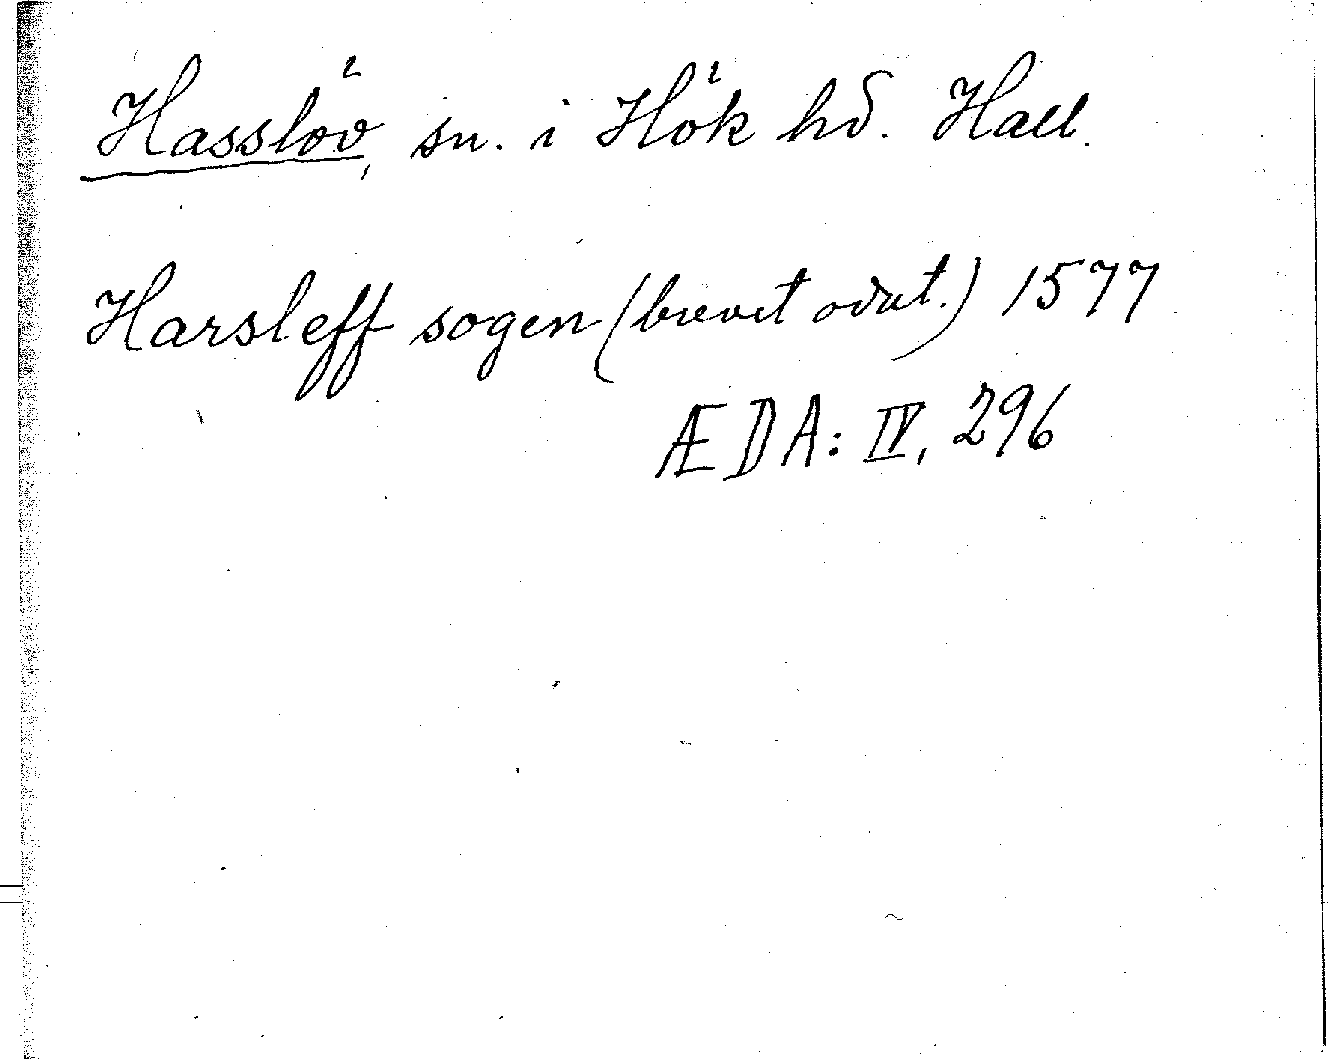 Hasslöv, sn. i Hök hd. Hall.
Harsleff sogen (brevet odat.) 1577
ÆDA: IV, 296